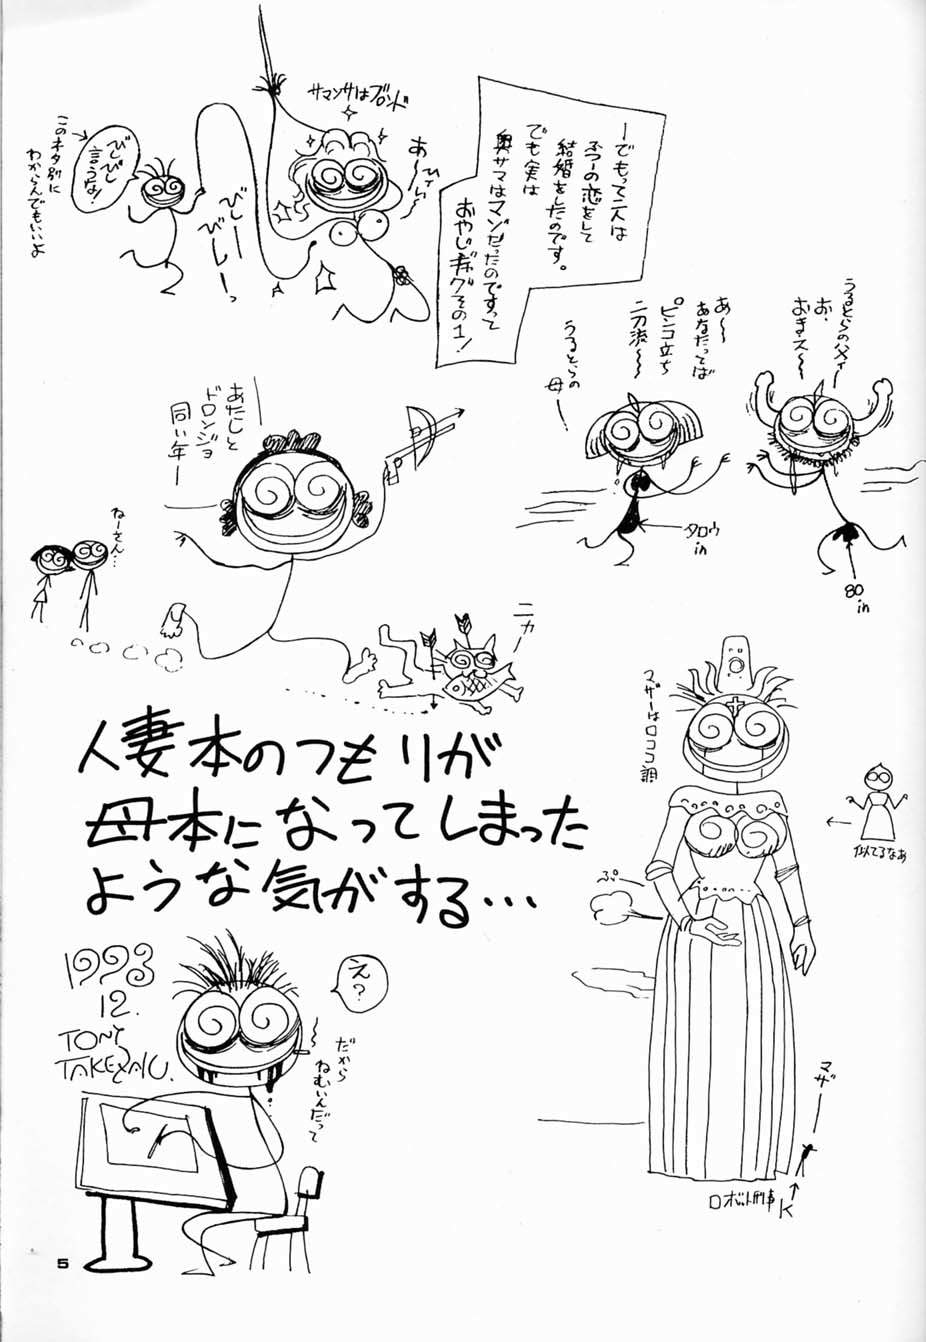 ーでもって二人は
フツーの恋をして
結婚をしたのです。
でも実は
奥サマはマゾだったのですって
おやじギャグその1！
サマンサはブロンド
あ〜
びしー
びしーっ
びしびし
言うな！
このネタ別に
わからんでもいいよ
うるとらの父ィ
お、
おきおス〜
あ〜
あなたってば
ピンコ立ち
二刀流〜
うるとらの
母ー
タロウ
in
80
in
あたしと
ドロンジョ
同い年ー
ねーさん…
ニカー
マザーはロココ調
似てるなあ
ぷー
人妻本のつもりが
母本になってしまった
ような気がする…
1993
12.
TONY
TAKEZAKI.
え？
だから
ねむいんだって
マザー
ロボット刑事K
5